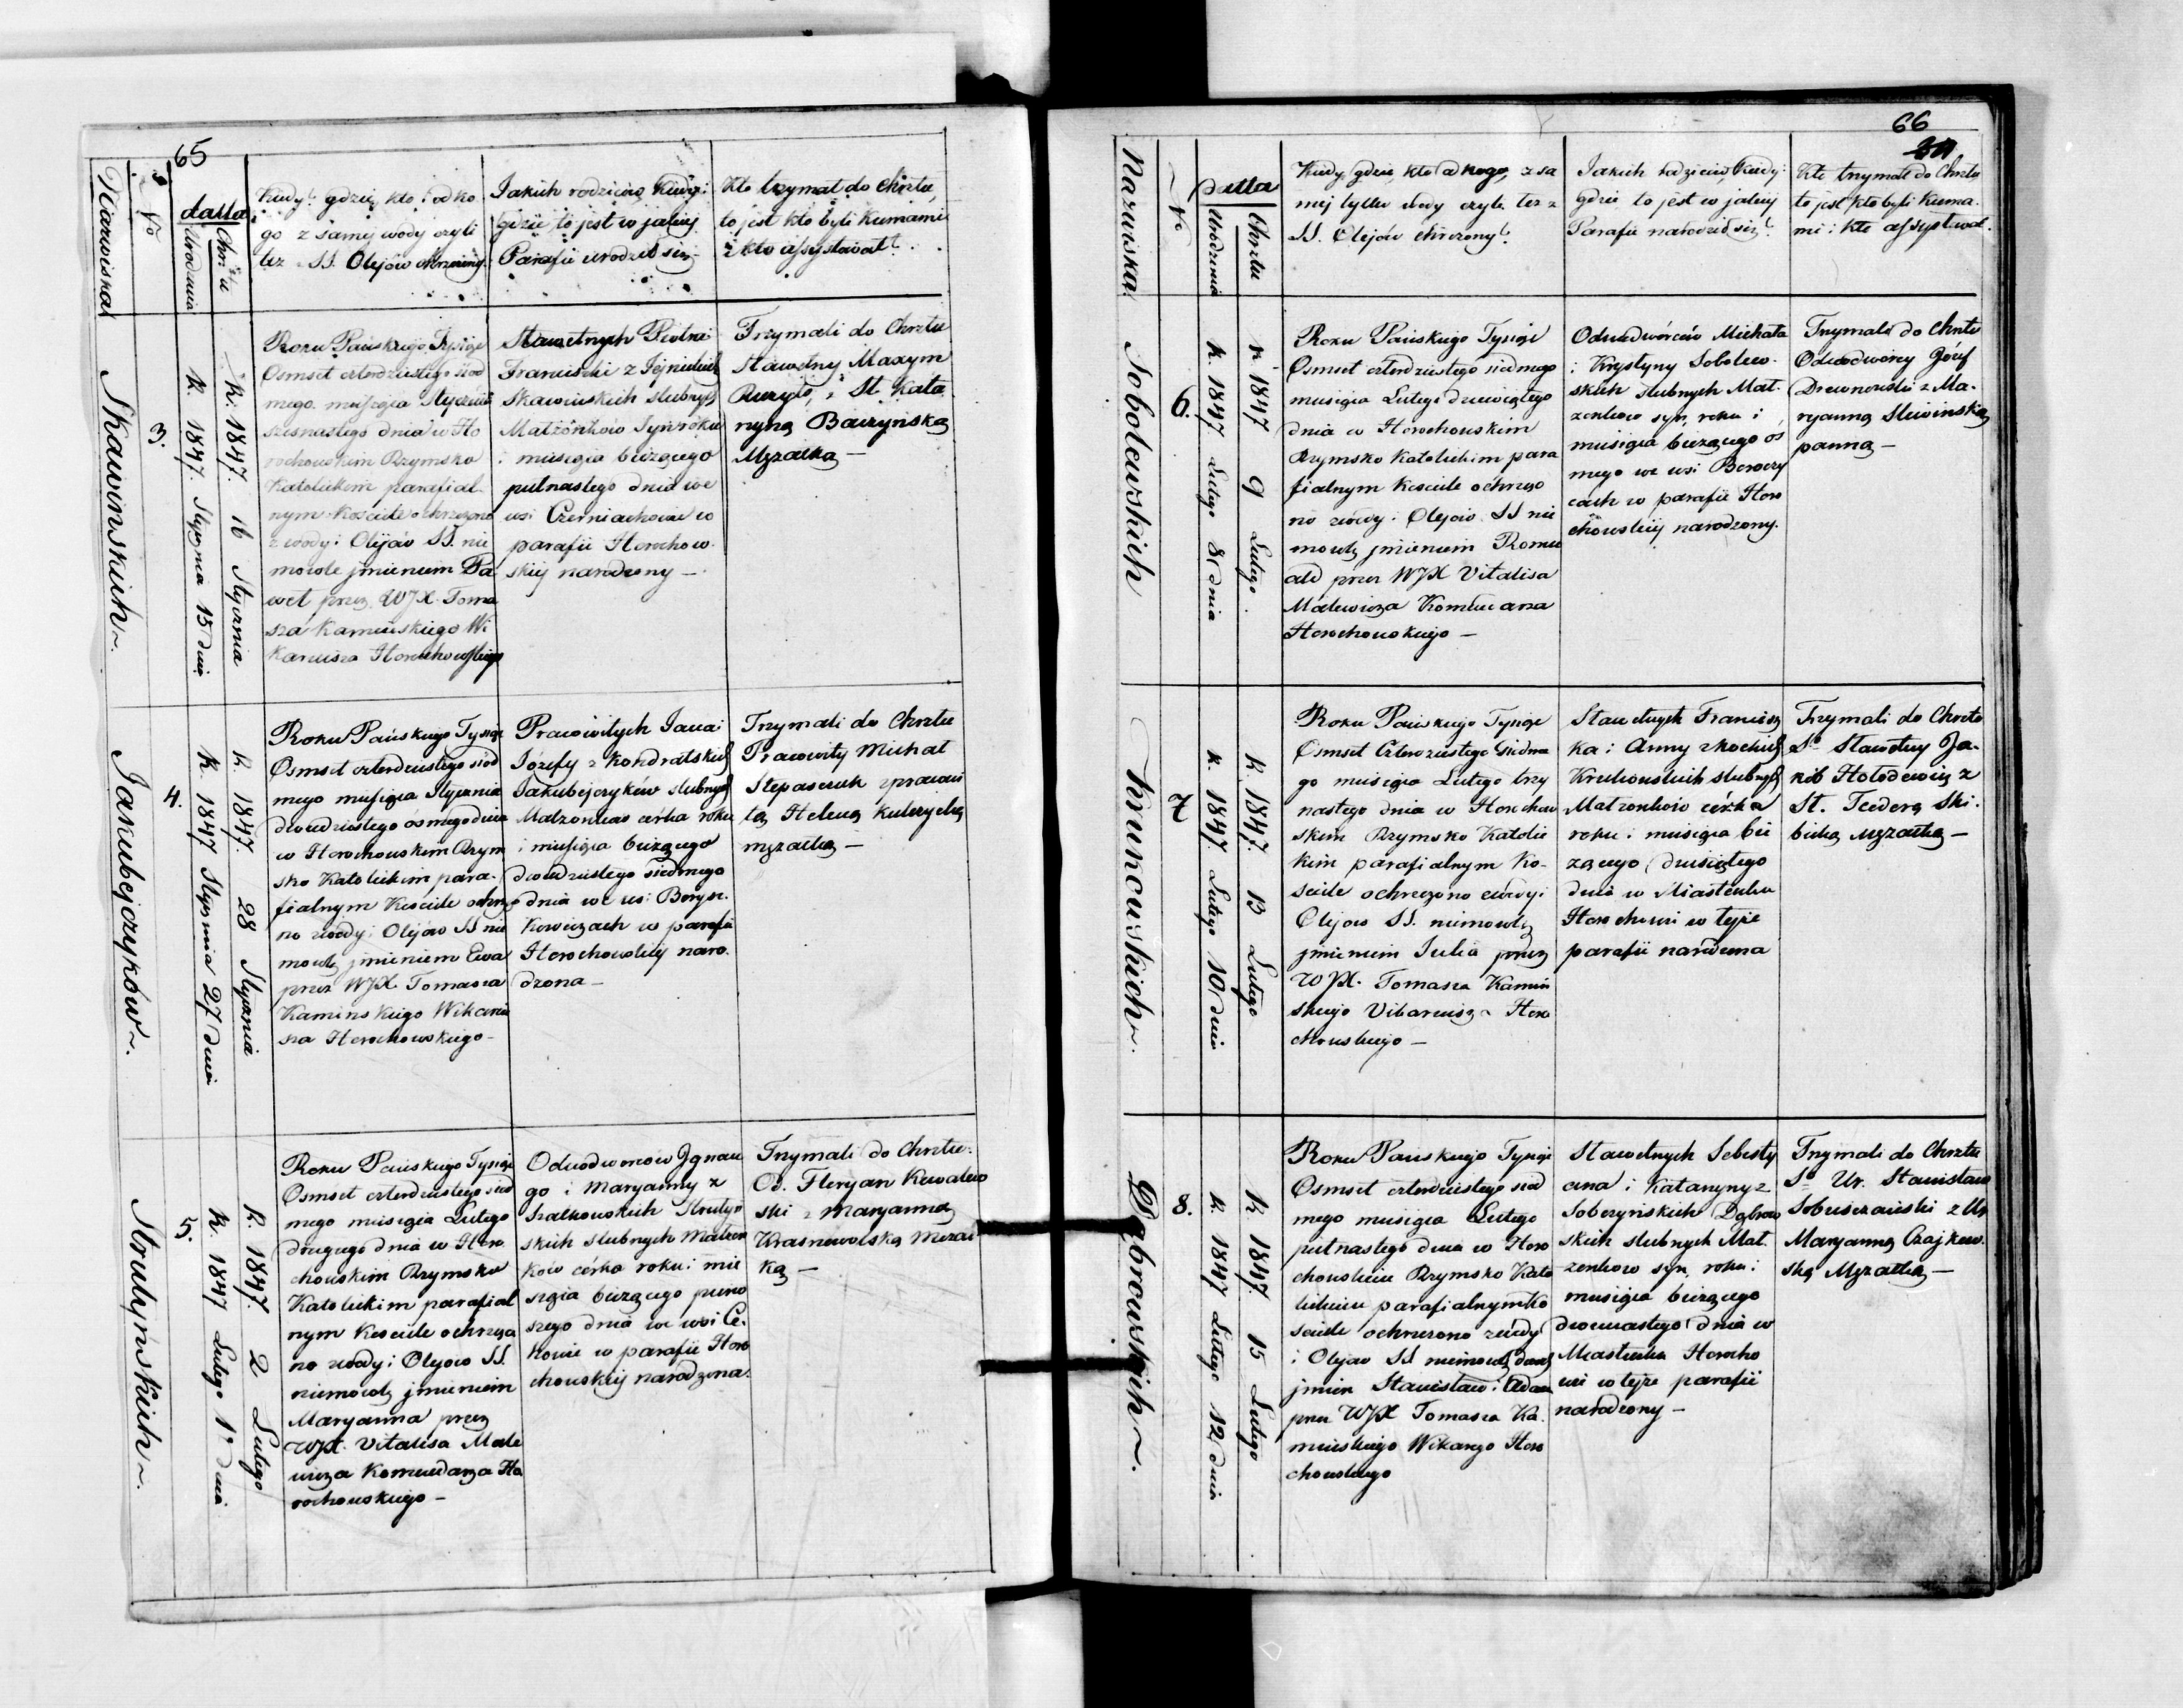 65
Nazwiska
No
datta
Urodzenia
Chrztu
Kiedy? gdzie, kto i od ko
go z samej wody czyli
tez z SS. Olejów chrzczony.
Jakich rodziców, kiedy i
gdzie to jest w jakiej
Parafii urodził się
Kto trzymał do Chrztu,
to jest kto byli Kumami
i kto assystował?
Skawinskich
3.
R. 1847. Stycznia 15 dnia
R. 1847. 16 Stycznia
Roku Pańskiego Tysiąc
Osmset czterdziestego siod
mego miesiąca Stycznia
szesnastego dnia w Ho
rochowskim Rzymsko
Katolickim parafial
nym Kościele ochrzczono
z wody i Olejów SS. nie
mowle jmieniem Pa
weł przez WJX. Toma
sza Kamińskiego Wi
karusza Horochowskiego
Sławetnych Piotra i
Franciszki z
Skawinskich slubnych
Małżonków Syn roku
i miesiąca bieżącego
pietnastego dnia we
wsi Czerniachowie w
parafii Horochow
skiej narodzony —
Trzymali do Chrztu
Sławetny Maxym
z St. Kata
rzyną Baczyńską
Mężatką —
Jakubejczyków
4.
R. 1847 Stycznia 27 dnia
R. 1847. 28 Stycznia
Roku Pańskiego Tysiąc
Osmset czterdziestego siod
mego miesiąca Stycznia
dwudziestego osmego dnia
w Horochowskim Rzym
sko Katolickim para
fialnym Kościele ochrzczo
no z wody i Olejów SS nie
mowlę jmieniem Ewa
przez WJX Tomasza
Kaminskiego Wikariu
sza Horochowskiego —
Pracowitych Jana i
Józefy z Kondratskich
Jakubejczyków slubnych
Małzonków córka roku
i miesiąca bieżącego
dwudziestego siedmego
dnia we wsi Boryn
kowiczach w parafii
Horochowskiej naro
dzona —
Trzymali do Chrztu
Pracowity Michał
Stepaszczuk z pracowi
tą Heleną
mężatką —
Strutyńskich
5.
R. 1847 Lutego 1o dnia
R. 1847. 2 Lutego
Roku Pańskiego Tysiąc
Osmset czterdziestego siod
mego miesiąca Lutego
drugiego dnia w Horo
chowskim Rzymsko
Katolickim parafial
nym Kosciele ochrzczo
no z wody i Olejów SS.
niemowlę jmieniem
Maryanna przez
WJX. Vitalisa Male
wicza Komendarza Ho
rochowskiego —
Odnodworców Jgnace
go i Maryanny z
Szatkowskich Strutyń
skich slubnych Małzon
ków córka roku i mie
siąca bieżącego pierw
szego dnia we wsi Ce
kowie w parafii Horo
chowskiej narodzona.
Trzymali do Chrztu:
Od. Floryan Kowalew
ski z Maryanną
Krasnowolską Mężat
ką —
66
Nazwiska
No
Datta
Urodzenia
Chrztu
Kiedy, gdzie, kto od kogo, z sa
mej tylko wody czyli tez z
SS. Olejów chrzczony?
Jakich rodziców, kiedy i
gdzie to jest w jakiej
Parafii narodził się?
Kto trzymał do Chrztu
to jest kto byli Kuma
mi i kto assystował.
Sobolewskich
6.
R. 1847. Lutego 8 dnia
R. 1847 9 Lutego
Roku Pańskiego Tysiąc
Osmset czterdziestego siedmego
miesiąca Lutego dziewiątego
dnia w Horochowskim
Rzymsko Katolickim para
fialnym Kosciele ochrzczo
no z wody i Olejów SS nie
mowlę jmieniem Romu
ald przez WJX Vitalisa
Malewicza Komendarza
Horochowskiego —
Odnodworców Michała
i Krystyny Sobolew
skich slubnych Mał
zonków syn, roku i
miesiąca bieżącego ós
mego we wsi Beroczy
cach w parafii Horo
chowskiej narodzony.
Trzymali do Chrztu
Odnodworcy Józef
Drewnowski z Ma
ryanną Sliwinską
panną —
Krukowskich
7
R. 1847. Lutego 10 dnia
R. 1847. 13 Lutego
Roku Pańskiego Tysiąc
Osmset Czterdziestego siedme
go miesiąca Lutego trzy
nastego dnia w Horochow
skim Rzymsko Katolic
kim parafialnym Ko
sciele ochrzczono z wody i
Olejów SS. niemowlę
jmieniem Julia przez
WJX. Tomasza Kamin
skiego Vikariusza Horo
chowskiego —
Sławetnych Francisz
ka i Anny z
Krukowskich slubnych
Małzonków córka
roku i miesiąca bie
zącego dziesiątego
dnia w Miasteczku
Horochowie w tejże
parafii narodzona
Trzymali do Chrztu
So Sławetny Ja
kób Hołodewicz z
St. Teodorą Ski
bicką mężatką —
Dąbrowskich
8.
R. 1847 Lutego 12 dnia
R. 1847. 15 Lutego
Roku Pańskiego Tysiąc
Osmset czterdziestego siod
mego miesiąca Lutego
pietnastego dnia w Horo
chowskim Rzymsko Kato
lickim parafialnym Ko
sciele ochrzczono z wody
i Olejów SS niemowlę dwóch
jmion Stanisław i Adam
przez WJX Tomasza Ka
mieńskiego Wikarego Horo
chowskiego
Sławetnych Sebesty
ana i Katarzyny z
Soboczyńskich Dąbrow
skich slubnych Mał
zonków syn, roku i
miesiąca bieżącego
dwunastego dnia w
Miasteczku Horocho
wie w tejże parafii
narodzony —
Trzymali do Chrztu
So Ur. Stanisław
Sobieszczański z Ur
Maryanną Czajkow
ską Mężatką —